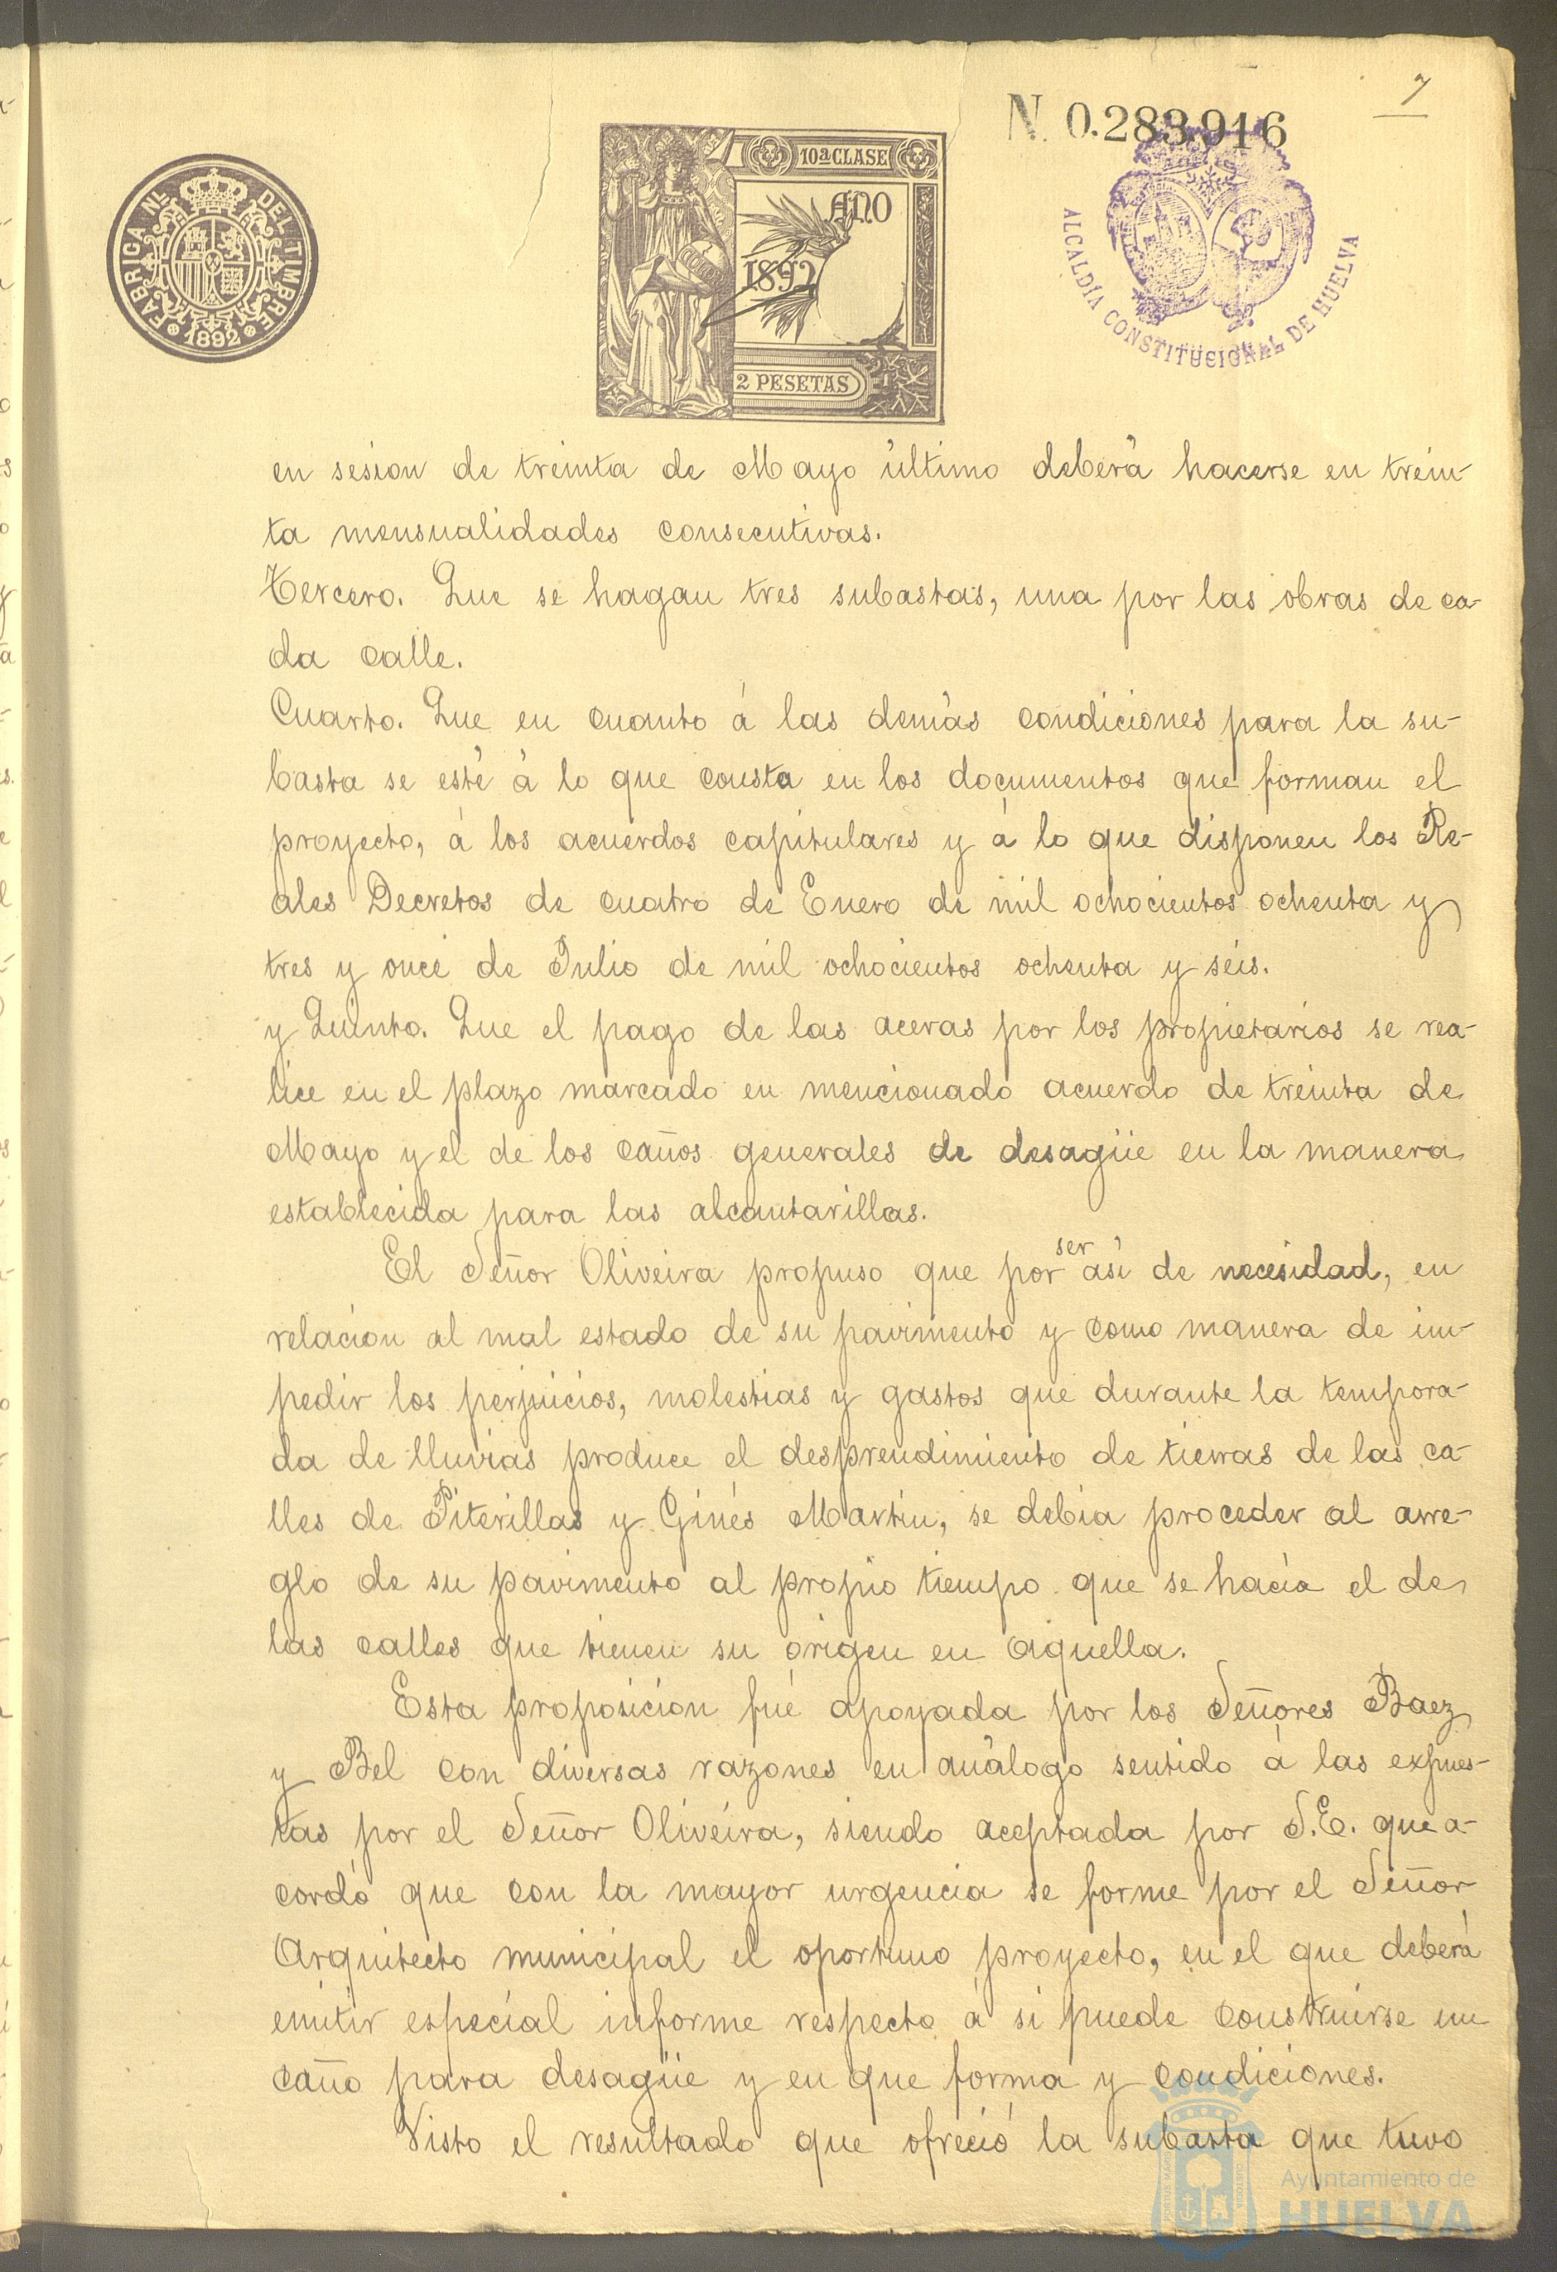 7
N. 0.283.916
FABRICA Nal. DEL TIMBRE
1892
10ª CLASE
AÑO
1892
2 PESETAS
ALCALDÍA CONSTITUCIONAL DE HUELVA
en sesion de treinta de Mayo último deberá hacerse en trein-
ta mensualidades consecutivas.
Tercero. Que se hagan tres subastas, una por las obras de ca-
da calle.
Cuarto. Que en cuanto á las demás condiciones para la su-
basta se esté á lo que consta en los documentos que forman el
proyecto, á los acuerdos capitulares y á lo que disponen los Re-
ales Decretos de cuatro de Enero de mil ochocientos ochenta y
tres y once de Julio de mil ochocientos ochenta y seis.
y Quinto. Que el pago de las aceras por los propietarios se rea-
lice en el plazo marcado en mencionado acuerdo de treinta de
Mayo y el de los caños generales de desagüe en la manera
establecida para las alcantarillas.
El Señor Oliveira propuso que por ser así de necesidad, en
relacion al mal estado de su pavimento y como manera de im-
pedir los perjuicios, molestias y gastos que durante la tempora-
da de lluvias produce el desprendimiento de tierras de las ca-
lles de Piterillas y Ginés Martin, se debia proceder al arre-
glo de su pavimento al propio tiempo que se hacia el de
las calles que tienen su origen en aquella.
Esta proposicion fué apoyada por los Señores Baez
y Bel con diversas razones en análogo sentido á las expues-
tas por el Señor Oliveira, siendo aceptada por S.E. que a-
cordó que con la mayor urgencia se forme por el Señor
Arquitecto municipal el oportuno proyecto, en el que deberá
emitir especial informe respecto á si puede construirse un
caño para desagüe y en que forma y condiciones.
Visto el resultado que ofreció la subasta que tuvo
Ayuntamiento de
HUELVA